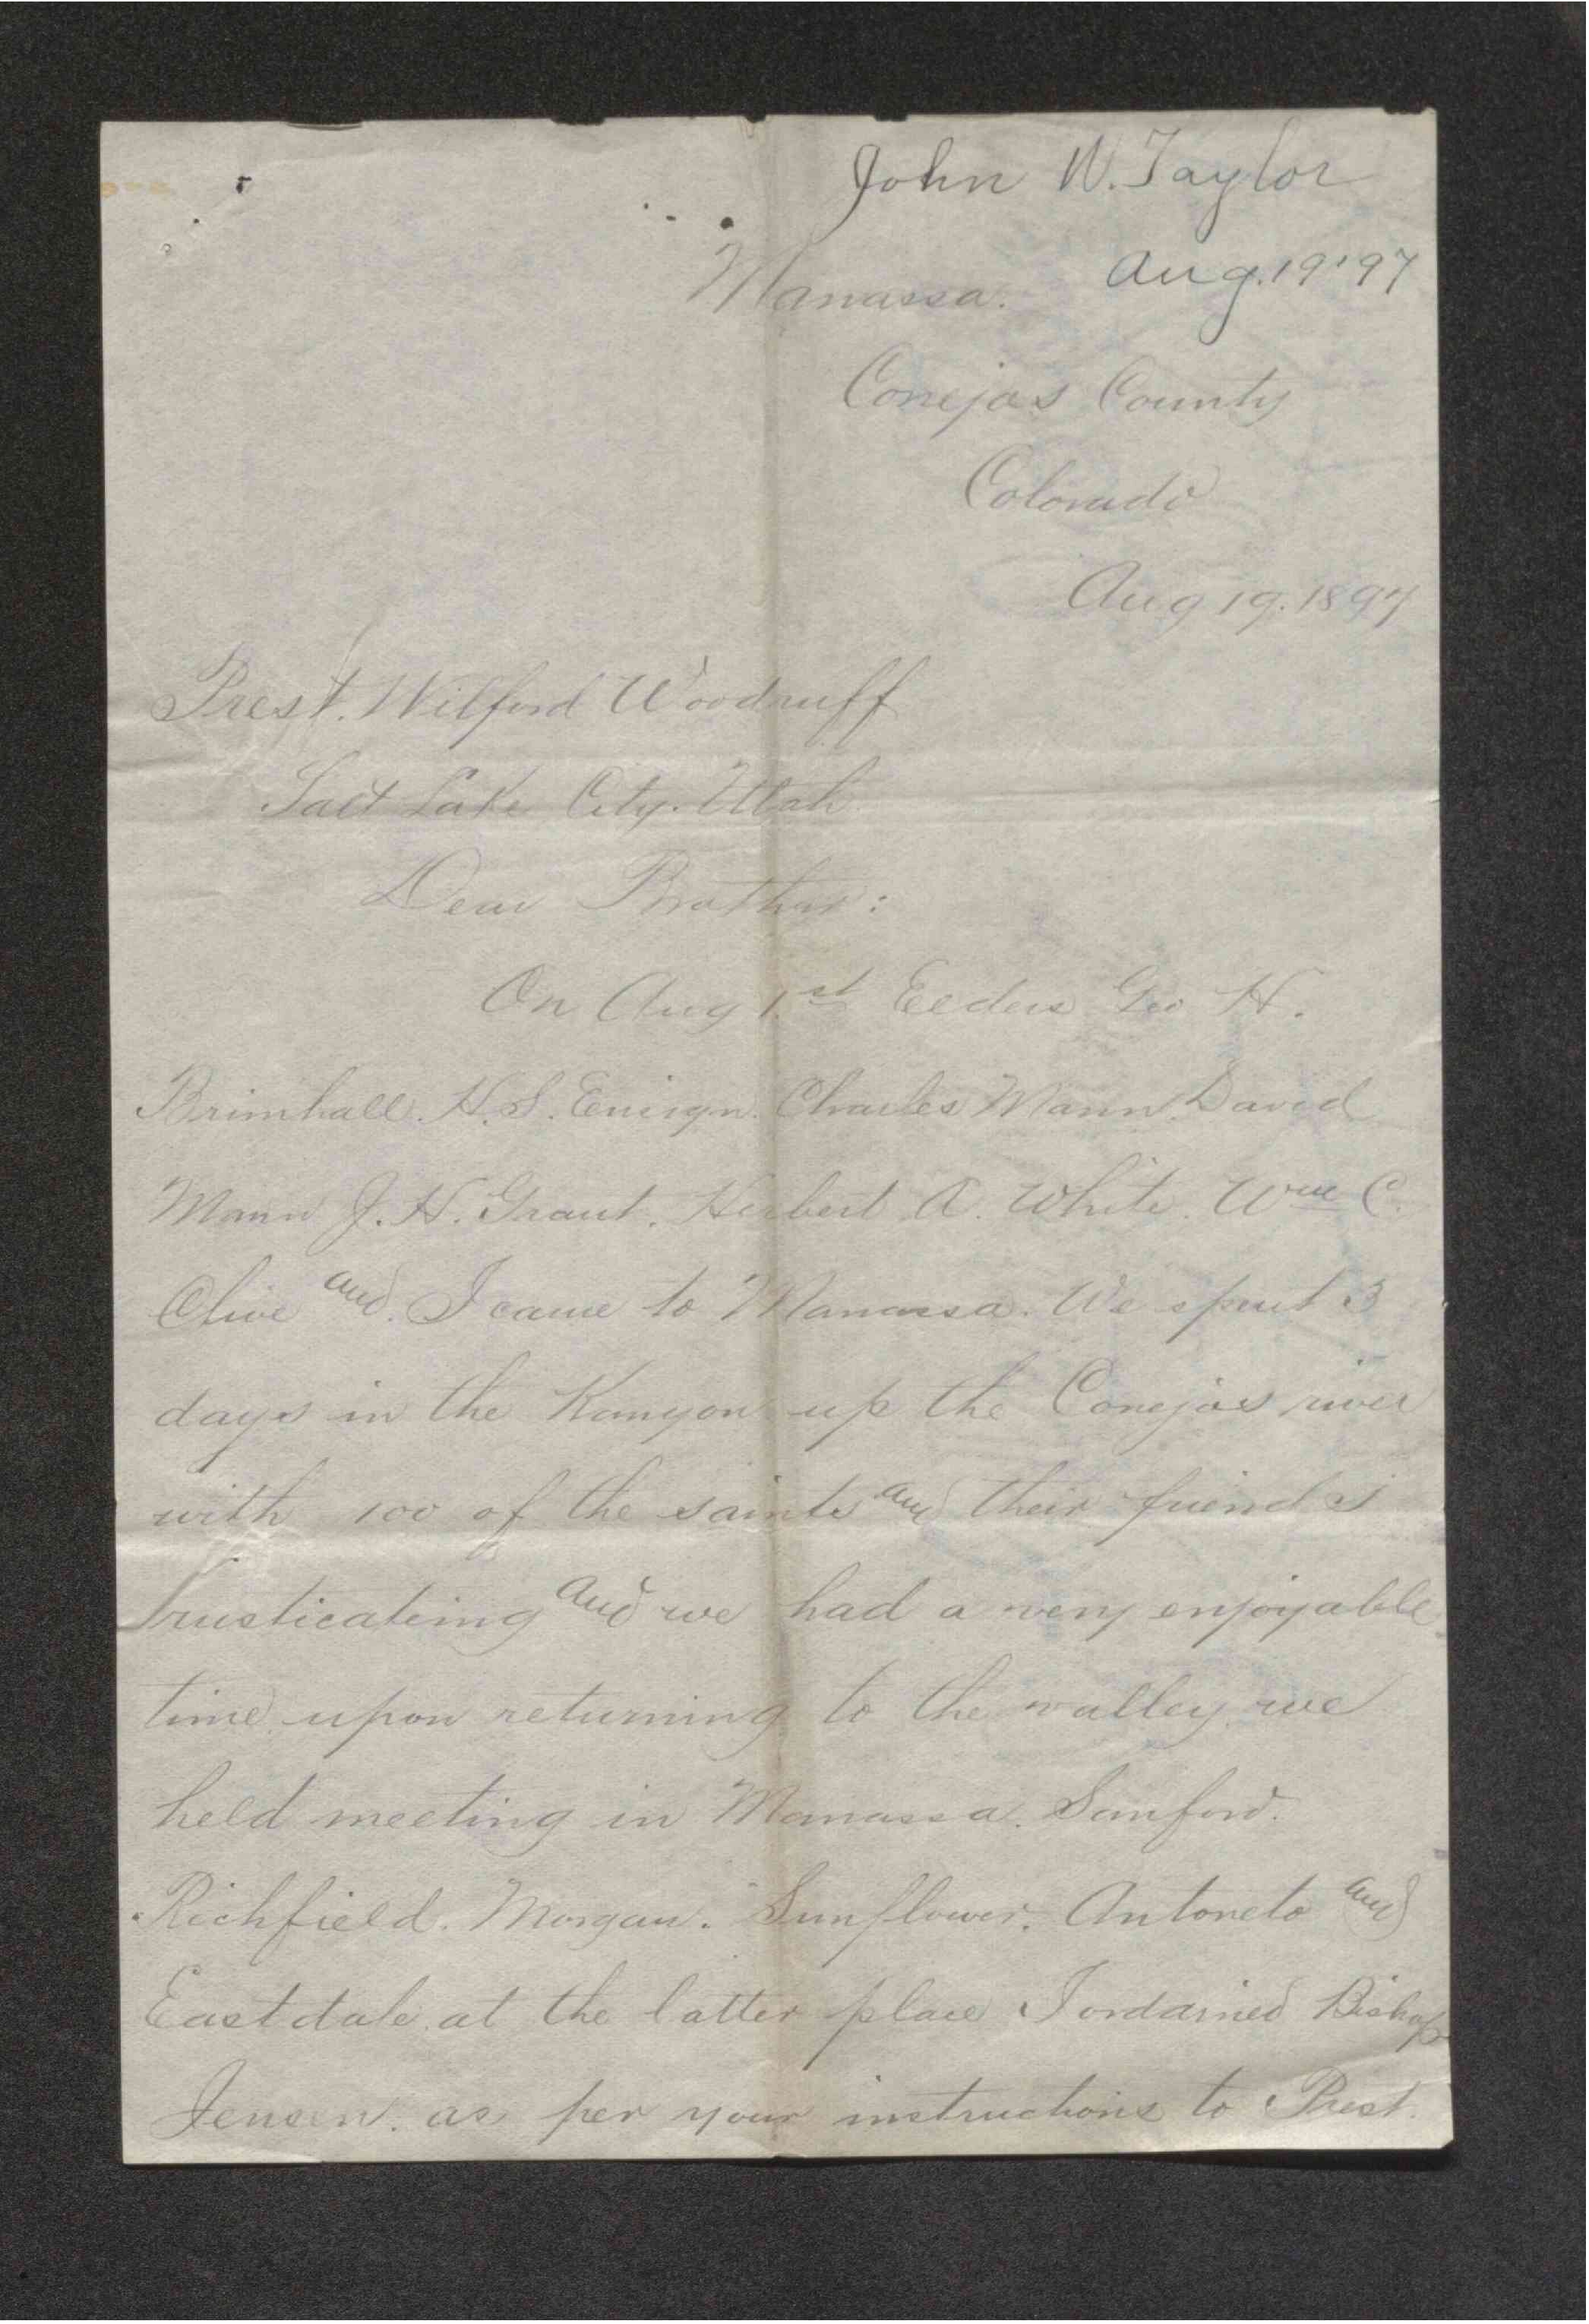 John W. Taylor
Aug. 19 '97
Manassa.
Conejos County
Colorado
Aug 19. 1897
Prest. Wilford Woodruff
Salt Lake City. Utah.
Dear Brother:
On Aug 1st Elders Geo H.
Brimhall. H. S. Ensign. Charles Mann. David
Mann J. H. Grant. Herbert A. White. Wm C.
Clive and. I came to Manassa. We spent 3
days in the Kanyon up the Conejos river
with 100 of the saints and their friends
rusticating and we had a very enjoyable
time. upon returning to the valley we
held meeting in Manassa. Sanford.
Richfield. Morgan. Sunflower. Antoneto and
Eastdale. at the latter place I ordained Bishop
Jensen. as per your instructions to Prest.